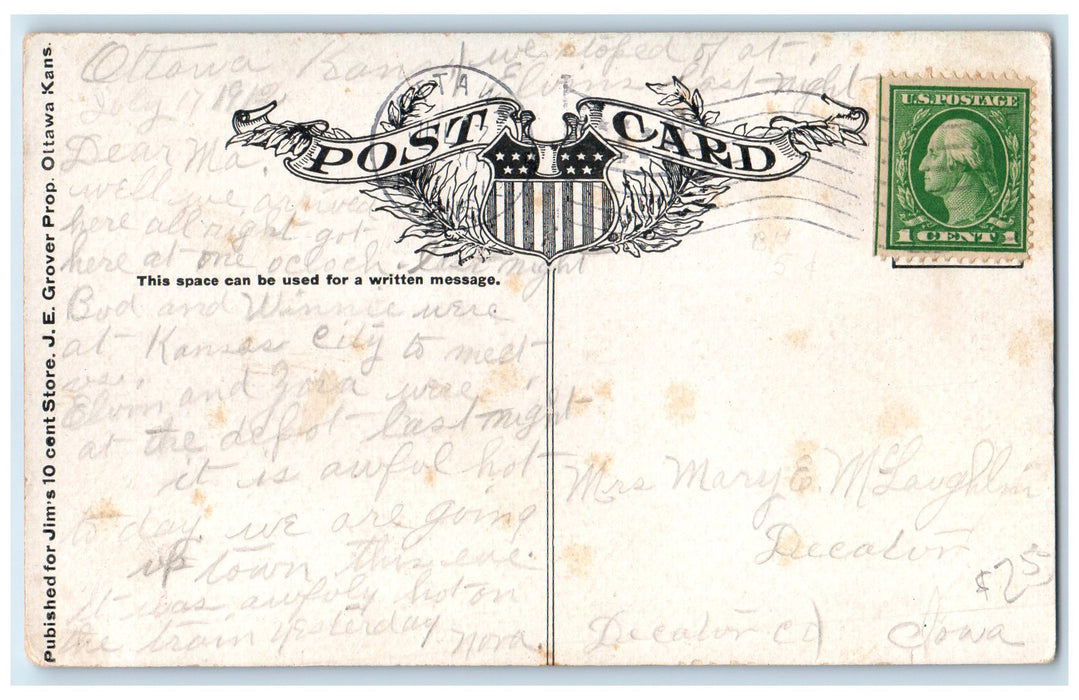 Ottawa Kan
July 7 1912
Dear Ma
well we arrived
here all right got
here at one oclock last night
Bud and Winnie were
at Kansas City to meet
us.
Elvin and Zora were
at the depot last night
it is awful hot
to day we are going
up town this eve.
it was awfuly hot on
the train yesterday
Nora.
we stoped of at
Elvins last night
POST CARD
This space can be used for a written message.
Pubished for Jim's 10 cent Store. J. E. Grover Prop. Ottawa Kans.
TA
U.S. POSTAGE
1 CENT 1
Mrs Mary E. McLaughlin
Decatur
Decatur Co
Iowa
$25